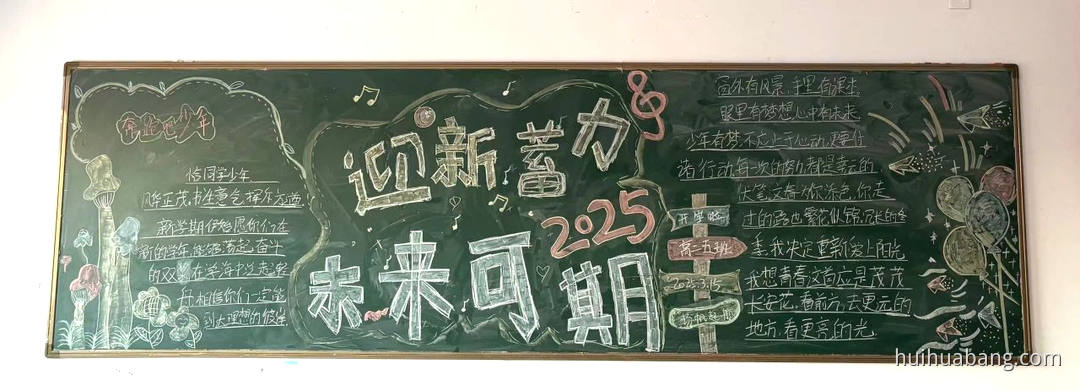 奔跑吧少年
恰同学少年
风华正茂,书生意气,挥斥方遒
新学期伊始愿你们在
新的学年,能够荡起奋斗
的双桨在学海中从起轻
舟,相信你们一定能
到大理想的彼岸
迎新蓄力
2025
未来可期
开学啦
高二五班
2025.3.15
扬帆起航
窗外有风景,手里有课本
眼里有梦想,心中有未来
少年有梦,不应止于心动,更要付
诸行动,每一次的努力都是幸运的
伏笔,这春,你添色,你走
过的路也繁花似锦,冗长的冬
季,我决定重新爱上阳光
我想青春这词应是茂茂
长安花,看前方,去更远的
地方,看更亮的光
huihuabang.com